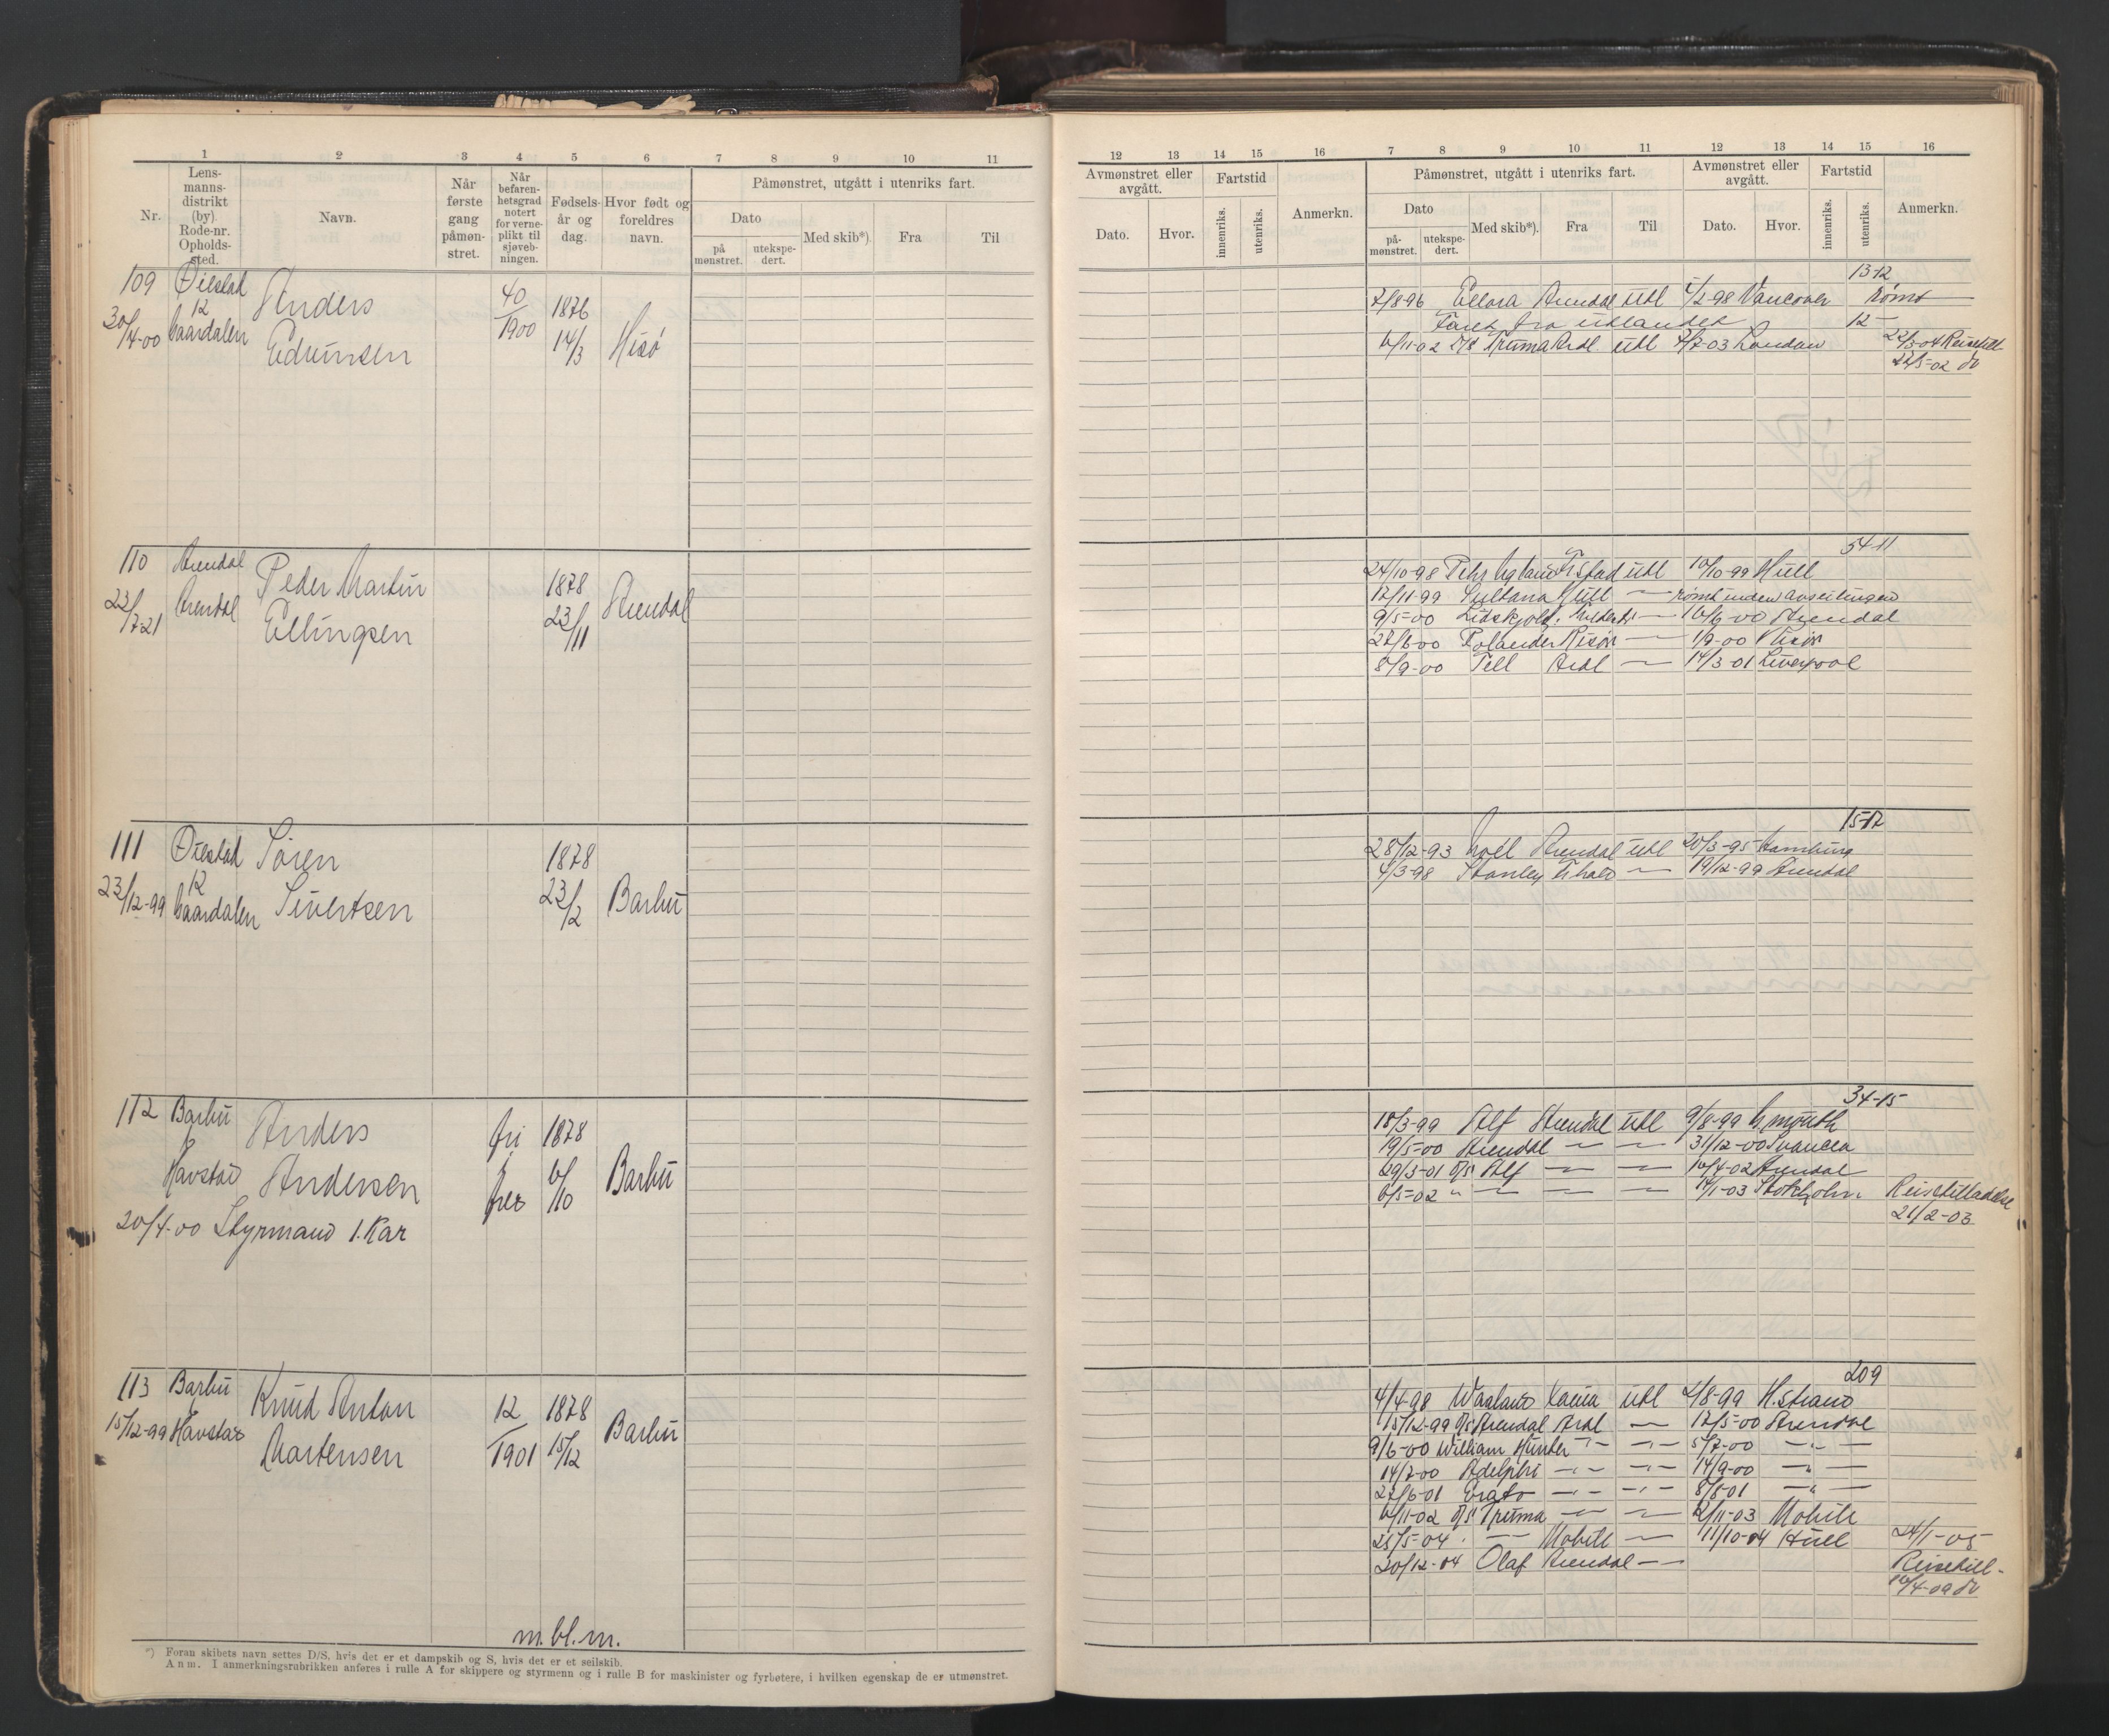 1 2 3 4 5 6 7 8 9 10 11
Nr.
Lens-
manns-
distrikt
(by).
Rode-nr.
Opholds-
sted.
Navn.
Når
første
gang
påmøn-
stret.
Når
befaren-
hetsgrad
notert
for verne-
plikt til
sjøveb-
ningen.
Fødsels-
år og
dag.
Hvor født og
foreldres
navn.
Påmønstret, utgått i utenriks fart.
Dato
på
mønstret.
utekspe-
dert.
Med skib*).
Fra
Til
109 Øiestad
12
30/4-00
Anders
Edvinsen
40/1900
1876
14/3
Hisø
110 Arendal
23/7-21 Arendal
Peder Martin
Ellingsen
1878
23/11
Arendal
111 Øiestad
12
23/12-99
Søren
Sivertsen
1878
23/2
Barbu
112 Barbu
Havstad
Anders
Andersen
fri
1878
6/10
Barbu
20/4-00 Styrmand 1. Kar
113 Barbu
15/12-99 Havstad
Knud Anton
Martensen
12/1901
1878
15/12
Barbu
m. bl. m.
*) Foran skibets navn settes D/S, hvis det er et dampskib og S, hvis det er et seilskib.
Anm. I anmerkningsrubrikken anføres i rulle A for skippere og styrmenn og i rulle B for maskinister og fyrbøtere, i hvilken egenskap de er utmønstret.
12 13 14 15 16 7 8 9 10 11 12 13 14 15 16
Avmønstret eller
avgått.
Dato.
Hvor.
Fartstid
innenriks.
utenriks.
Anmerkn.
Påmønstret, utgått i utenriks fart.
Dato
på-
mønstret.
utekspe-
dert.
Med skib*).
Fra
Til
Avmønstret eller
avgått.
Dato.
Hvor.
Fartstid
innenriks.
utenriks.
Anmerkn.
13-12
7/8-96 Ellora Arendal utl 4/2-98 Vancover rømt
Faret fra utlandet 12 —
6/11-02 D/S Pruma Ardl. utl 4/7-03 London 22/3-04 Reisetill.
22/5-02 do
54-11
24/10-98 Pehr Ugland Fr.stad utl 10/10-99 Hull
17/11-99 Sultana Hull — rømt inden avseilingen
9/5-00 — 16/6-00 Arendal
27/6-00 Polander Risør — 1/9-00
8/9-00 Tell Ardl — 14/3-01 Liverpool
15-17
28/12-93 Arendal utl 20/3-95 Hamburg
4/3-98 Stanley — 19/12-99 Arendal
34-15
18/3-99 Alf Arendal utl 9/8-99
19/5-00 Arendal — — 31/12-00 Svancea
29/3-01 D/S Alf — — 10/4-02 Arendal
6/5-02 " — — — 14/1-03 Stokholm. Reisetilladelse
21/2-03
209
4/4-98 utl 2/8-99 H.strand
15/12-99 D/S Arendal Ardl — 17/5-00 Arendal
9/6-00 William Hunter —"— —"— 5/7-00 —"—
14/7-00 Adelphi —"— —"— 14/9-00 —"—
27/6-01 Erato —"— —"— 8/8-01 —"—
6/11-02 D/S Pruma — — 12/11-03 Mobile
25/5-04 — Mobile — 11/10-04 Hull 24/1-05
20/12-04 Olaf Arendal — Reisetill.
10/4-09 do